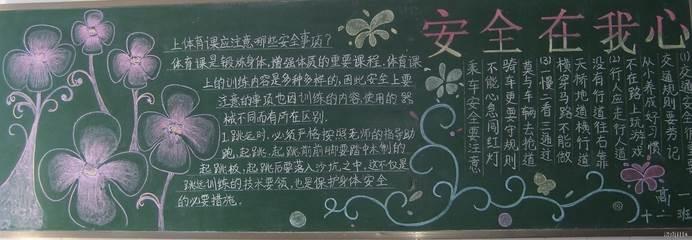 安全在我心
上体育课应注意哪些安全事项?
体育课是锻炼身体,增强体质的重要课程,体育课
上的训练内容是多种多样的,因此安全上要
注意的事项也因训练的内容,使用的器
械不同而有所在区别.
1.跳远时,必须严格按照老师的指导助
跑,起跳.起跳前前脚要踏中木制的
起跳板,起跳后要落入沙坑之中.这不仅是
跳远训练的技术要领,也是保护身体安全
的必要措施.
交通规则要劳记
从小养成好习惯
不在路上玩游戏
(2)行人应走行人道
没有行道往右靠
天桥地道横行道
横穿马路不能做
(3)一慢二看三通过
莫与车辆去抢道
骑车更要守规则
不能心急闯红灯
乘车安全要注意
高一
十二班